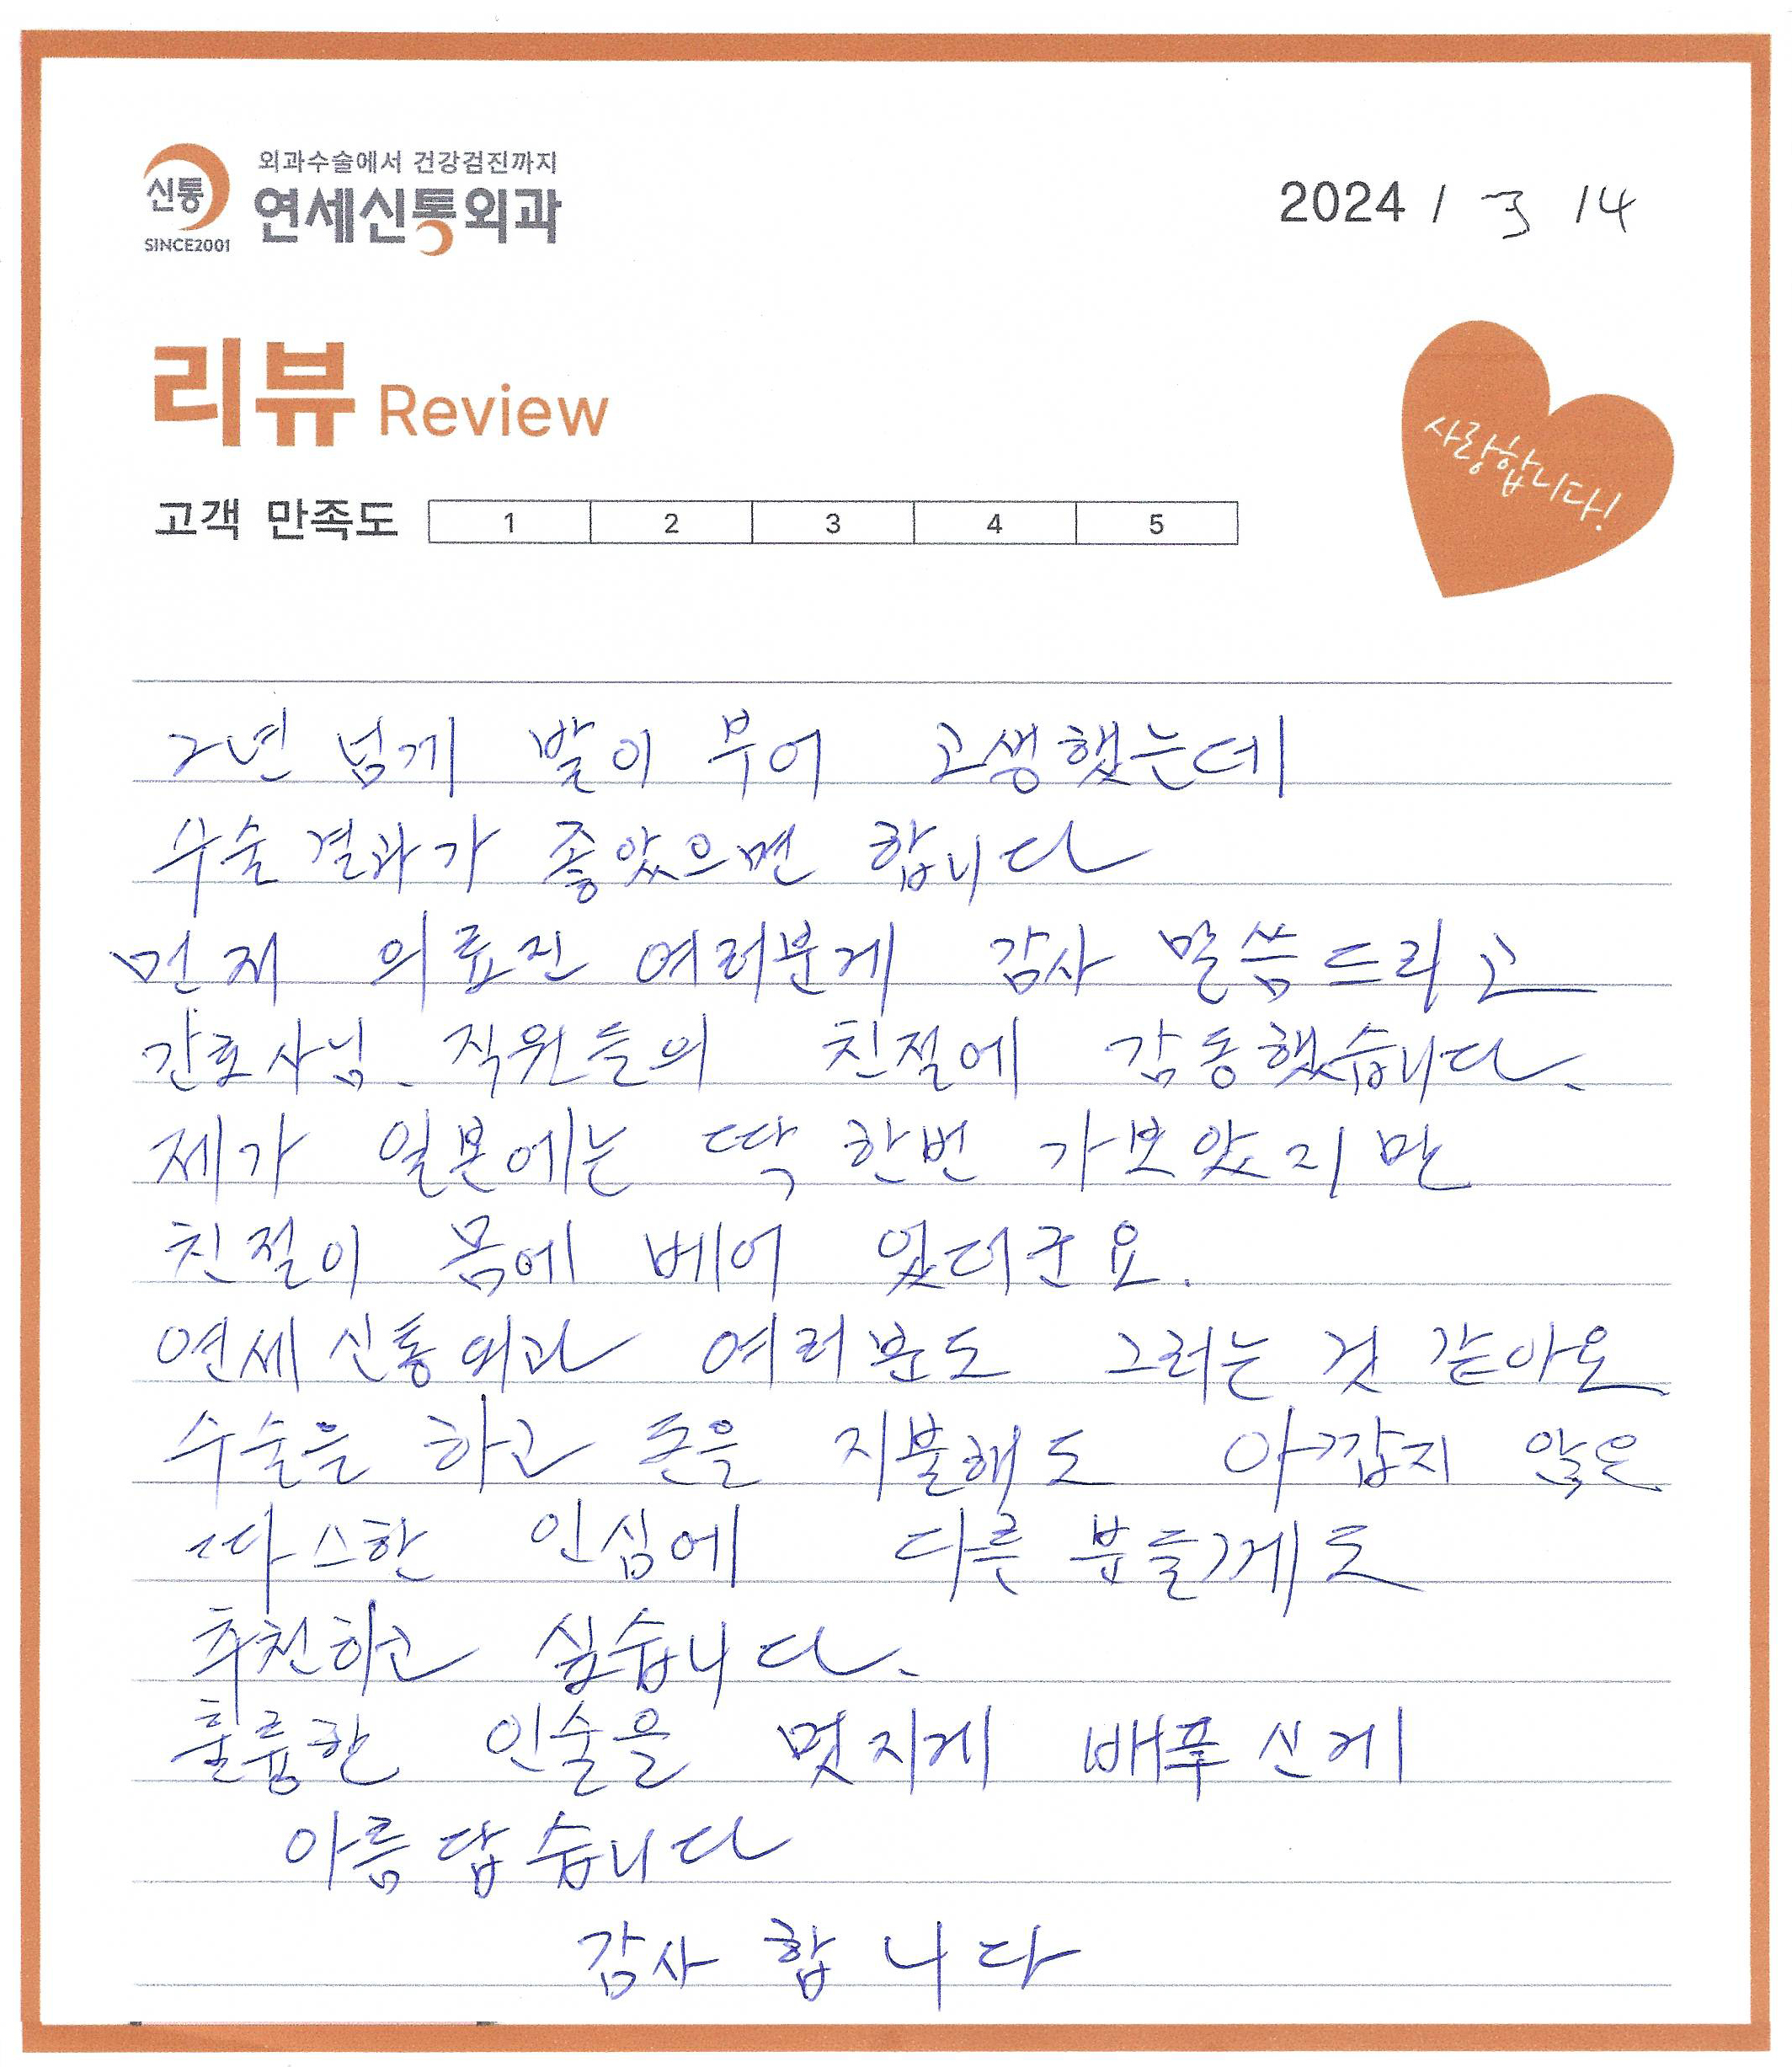 신통
SINCE2001
외과수술에서 건강검진까지
연세신통외과
2024 / 3 14
리뷰 Review
사랑합니다!
고객 만족도 1 2 3 4 5
2년 넘게 발이 부어 고생했는데
수술 결과가 좋았으면 합니다
먼저 의료진 여러분게 감사 말씀드리고
간호사님. 직원들의 친절에 감동했습니다.
제가 일본에는 딱 한번 가보았지만
친절이 몸에 베어 있더군요.
연세신통외과 여러분도 그러는 것 같아요
수술을 하고 돈을 지불해도 아깝지 않은
따스한 인심에 다른 분들께도
추천하고 싶습니다.
훌륭한 인술을 멋지게 배푸신게
아름답습니다
감사합니다